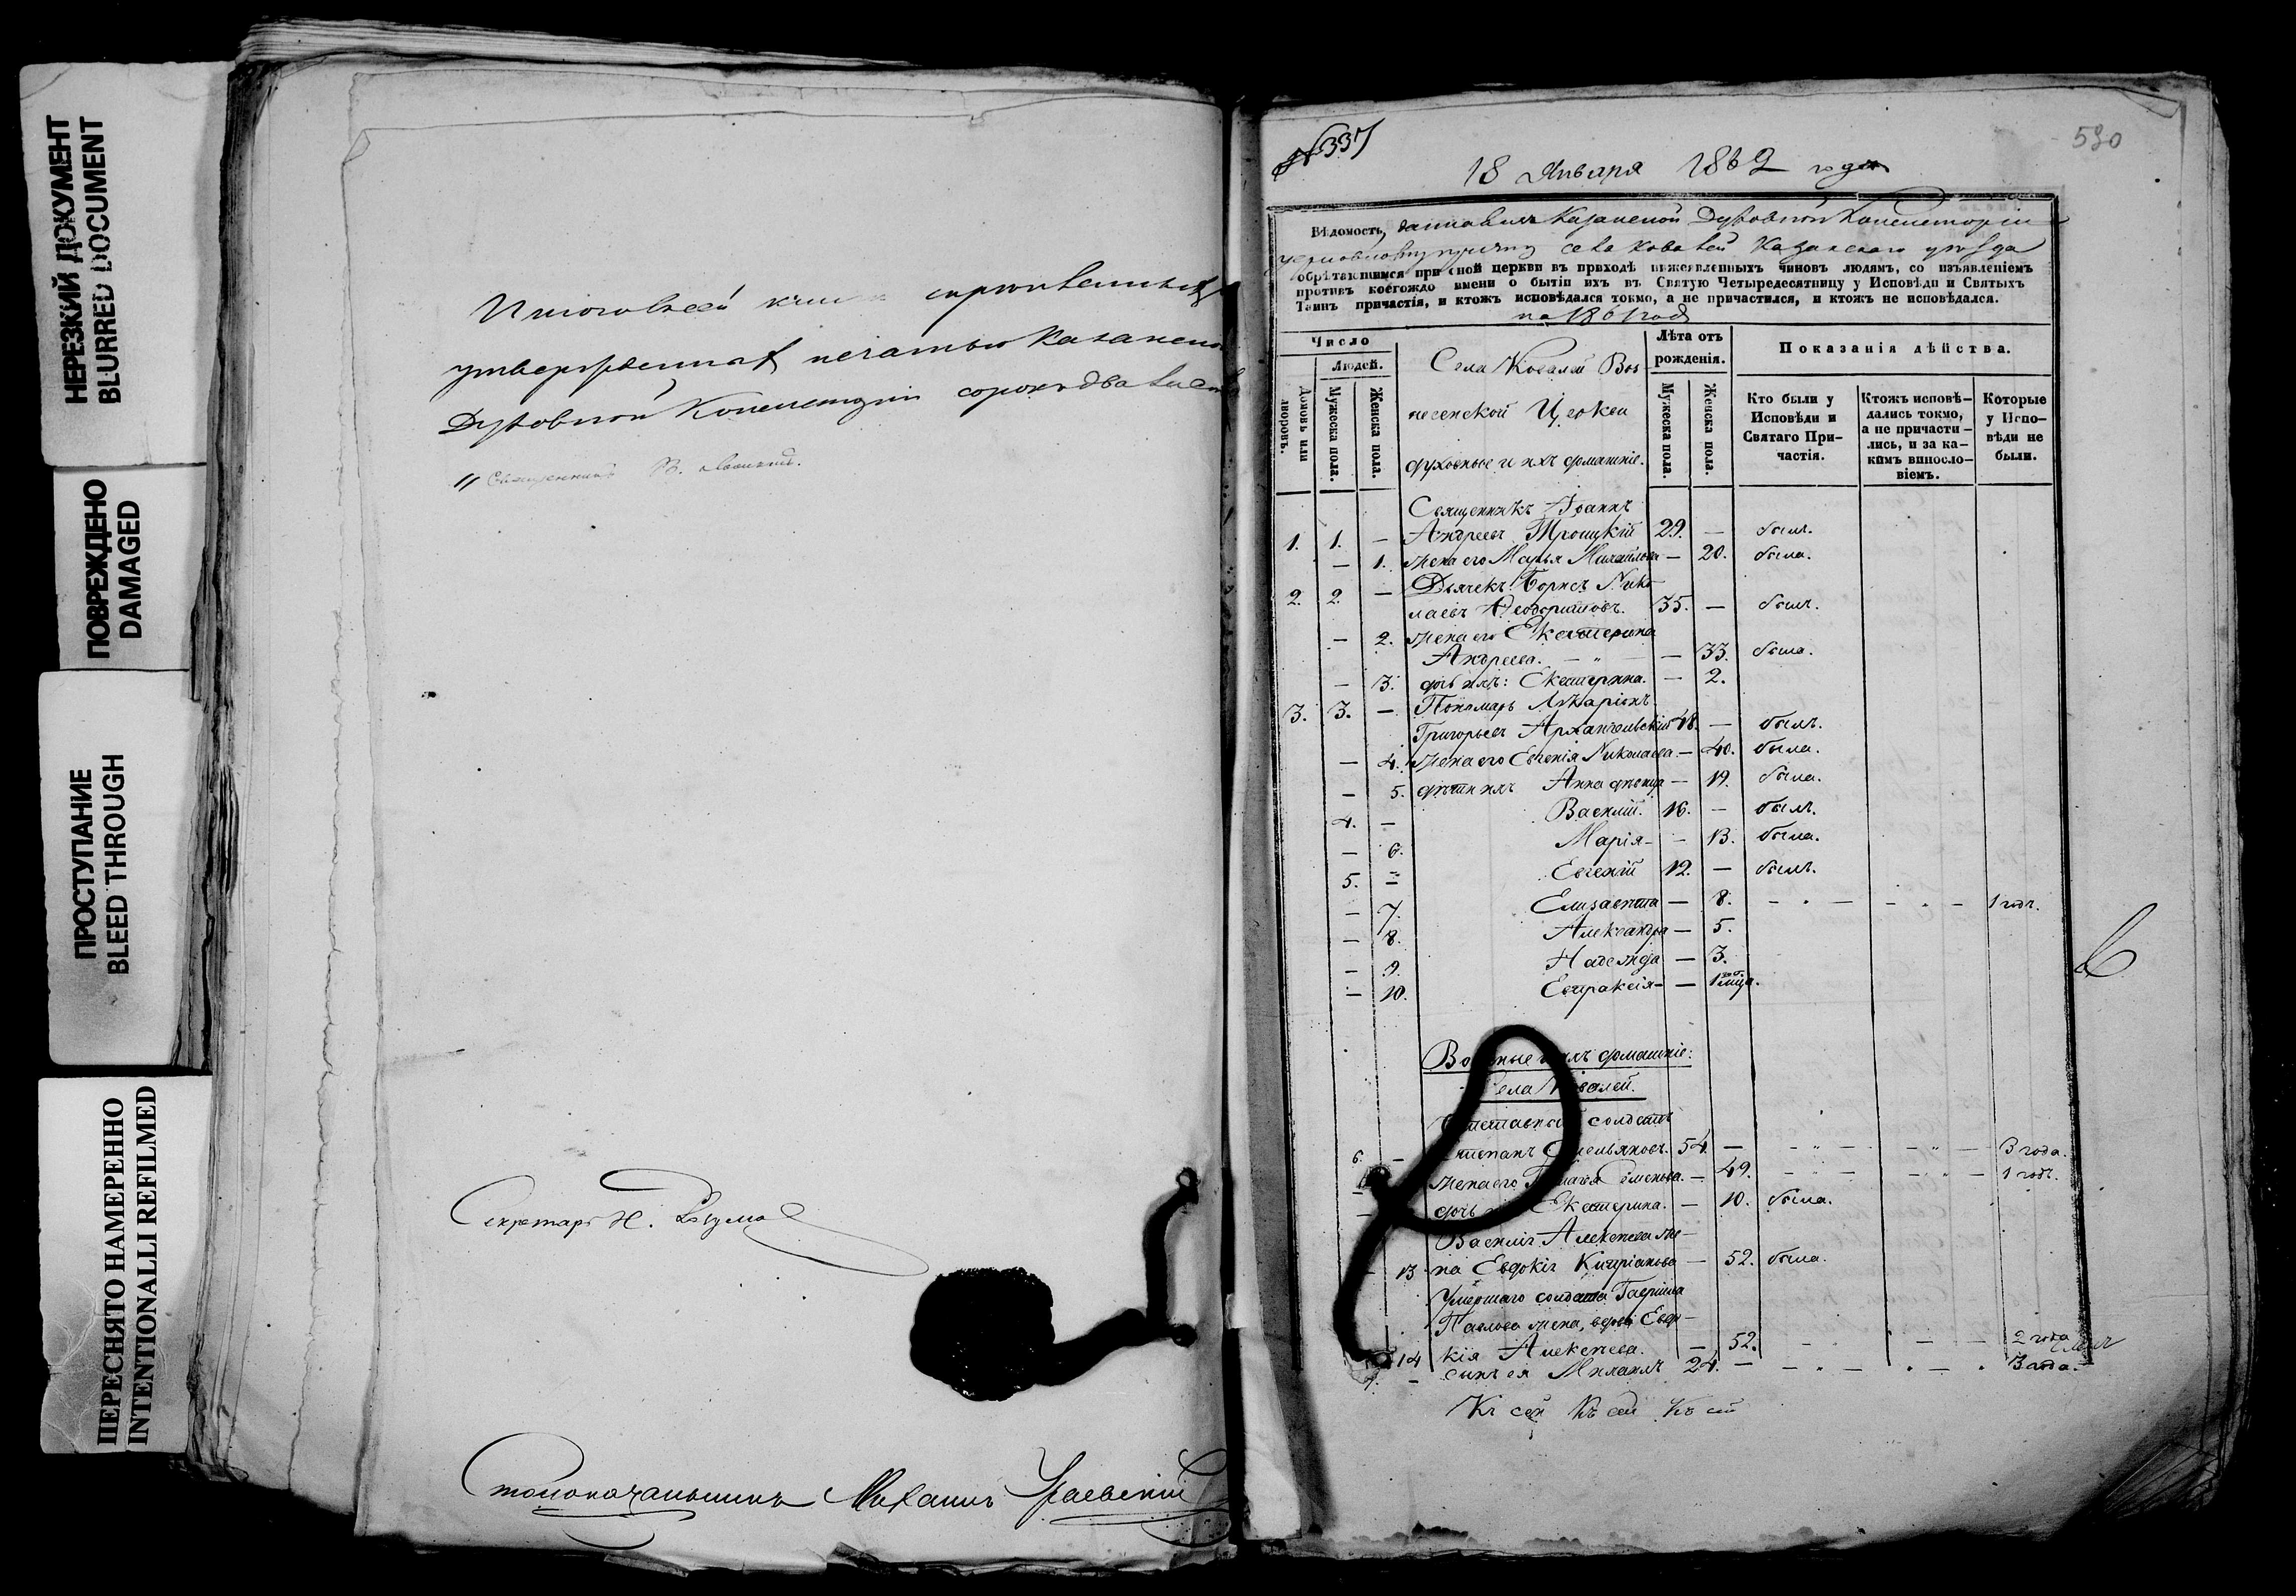 НЕРЕЗКИЙ ДОКУМЕНТ
BLURRED DOCUMENT
ПОВРЕЖДЕНО
DAMAGED
ПРОСТУПАНИЕ
BLEED THROUGH
ПЕРЕСНЯТО НАМЕРЕННО
INTENTIONALLI REFILMED
Итого всей
утвержденная печатью Казанской
Духовной Консисторiи сорокъ два
Священникъ
Секретарь Н. Разумов
Столоначальникъ Михаилъ Ураевскiй
№337
530
18 Января 1862 года
Вѣдомость, Казанской Духовной Консисторiи
села Ковалей Казанскаго уѣзда
обрѣтающимся при оной церкви въ приходѣ нижеявленныхъ чиновъ людямъ, со изъявленiемъ
противъ коегождо имени о бытiи ихъ въ Святую Четыредесятницу у Исповѣди и Святыхъ
Таинъ причастiя, и ктожъ исповѣдался токмо, а не причастился, и ктожъ не исповѣдался.
на 1861 годъ
Число
Людей.
Домовъ или дворовъ.
Мужеска пола.
Женска пола.
Села Ковалей Воз-
несенской Церкви
духовные и ихъ домашнiе.
Лѣта отъ рожденiя.
Мужеска пола.
Женска пола.
Показанiя дѣйства.
Кто были у Исповѣди и Святаго При-частiя.
Ктожъ исповѣ-дались токмо, а не причасти-лись, и за ка-кимъ виносло-вiемъ.
Которые у Испо-вѣди не были.
Священникъ Iоаннъ
1. 1. — Андреевъ Троицкiй 29. — былъ.
— 1. жена его Марья Михайлова — 20. была.
2. 2. — Дьячекъ Борисъ Нико-
лаевъ 35. — былъ.
— 2. жена его Екатерина
Андреева. — " — — 33. была.
— 3. дочь ихъ: Екатерина. — 2.
3. 3. — Пономарь Иларiонъ
Григорьевъ Архангельскiй 48. — былъ.
— 4. жена его Евгенiя Николаева — 40. была.
— 5. дѣти ихъ Анна дѣвица — 19. была.
4. — Василiй. 16. — былъ.
— 6. Марiя — — 13. была.
5. — Евгенiй 12. — былъ.
— 7. Елизавета — 8. — " — — " — 1 годъ.
— 8. Александра — 5.
— 9. Надежда — 3.
— 10. Евпраксiя — — 1
Военные и ихъ домашнiе:
Села Ковалей.
Отставный солдатъ
6. — Степанъ Емельяновъ. 54. — — " — — " — 3 года.
жена его Семенова. — 49. — " — — " — 1 годъ.
дочь Екатерина. — 10. была.
Василiя Алексѣева же-
13 на Евдокiя Кипрiанова — 52. была.
Умершаго солдата Гаврiила
Павлова жена, вдова Евдо-
14 кiя Алексѣева. — 52. — — 2 года
7. — сынъ ея Михаилъ 24. — — " — " — " 3 года.
Къ сей Къ сей Къ сей